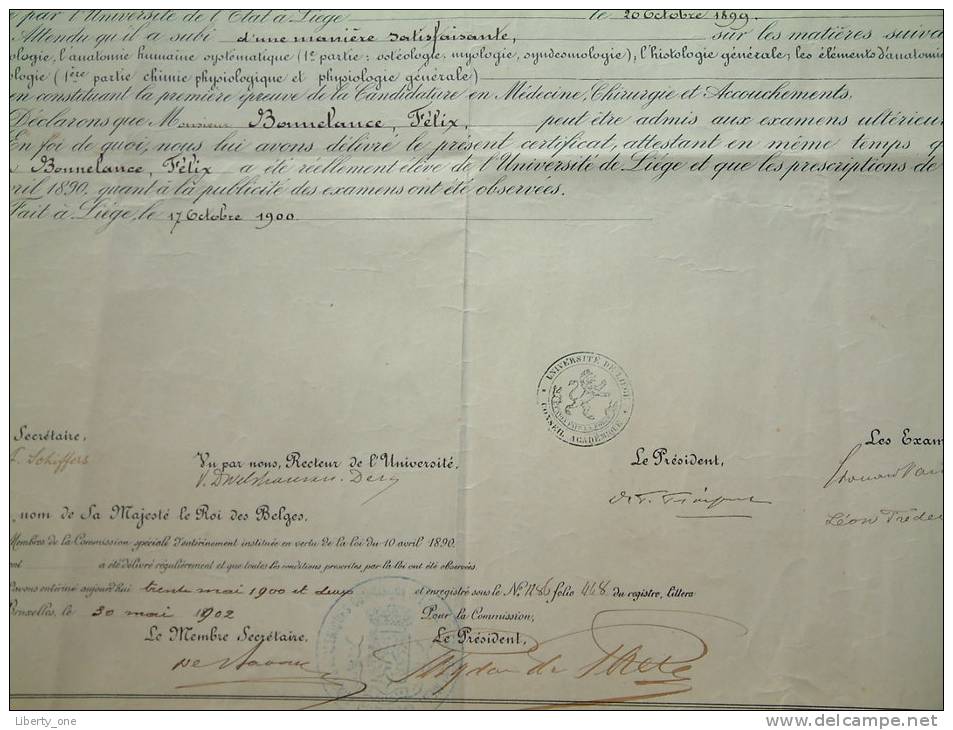 e par l'Université de l'Etat à Liège le 26 Octobre 1899.
Attendu qu'il a subi d'une manière satisfaisante, sur les matières suiva
ologie, l'anatomie humaine systématique (1e partie: ostéologie, myologie, syndesmologie), l'histologie générale, les éléments d'anatomie
ologie (1ère partie chimie physiologique et physiologie générale)
en constituant la première épreuve de la Candidature en Médecine, Chirurgie et Accouchements,
Déclarons que Monsieur Bonnelance, Félix, peut être admis aux examens ultérieur
En foi de quoi, nous lui avons délivré le présent certificat, attestant en même temps q
Bonnelance, Félix a été réellement élève de l'Université de Liège et que les prescriptions de
ril 1890, quant à la publicité des examens ont été observées.
Fait à Liège, le 17 Octobre 1900.
UNIVERSITÉ DE LIÈGE
CONSEIL ACADÉMIQUE
Secrétaire,
Schiffers
Vu par nous, Recteur de l'Université.
Le Président,
Les Exam
Léon Fréde
nom de Sa Majesté le Roi des Belges,
Membres de la Commission spéciale d'entérinement instituée en vertu de la loi du 10 avril 1890.
ont a été délivré régulièrement et que toutes les conditions prescrites par la loi ont été observées
avons entériné aujourd'hui trente mai 1900 et deux et enregistré sous le No folio 448 du registre, littera
Bruxelles, le 30 mai 1902
Pour la Commission,
Le Membre Secrétaire,
Le Président,
Liberty_one
www.delcampe.net